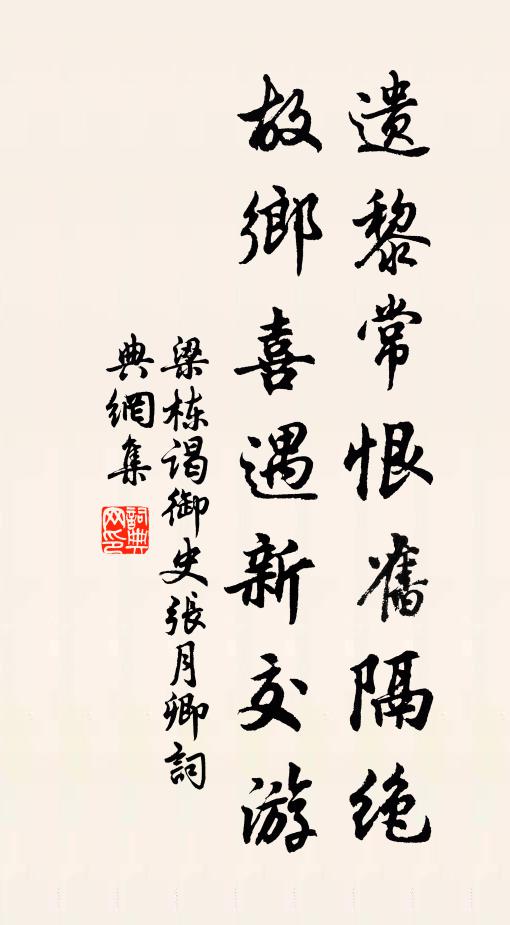 遗黎常恨舊隔绝
故鄉喜遇新交游
梁栋谒御史張月卿詞
典網集
詞典網印